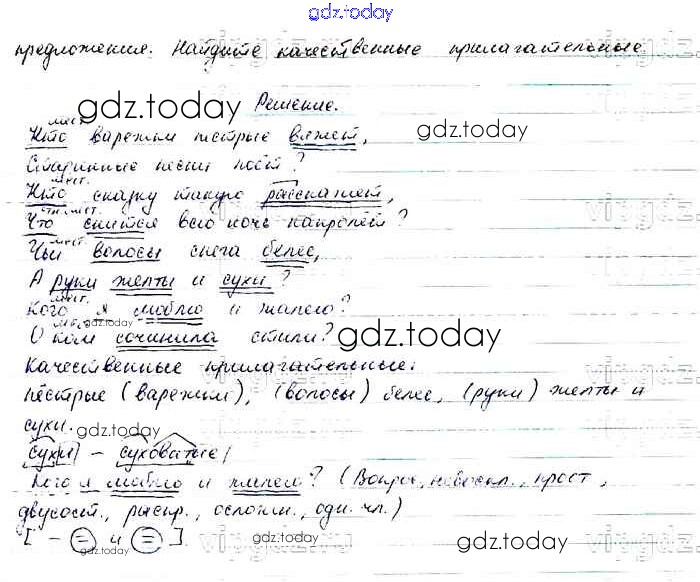 gdz.today
предложения. Найдите качественные прилагательные
gdz.today Решение.
мест.
Кто варежки пестрые вяжет, gdz.today
Старинные песни поёт?
мест.
Кто сказку такую расскажет,
мест.
Что снится всю ночь напролёт?
мест.
Чьи волосы снега белее,
А руки желты и сухи?
мест.
Кого я люблю и жалею?
мест. gdz.today
О ком сочинила стихи? gdz.today
Качественные прилагательные:
пёстрые (варежки), (волосы) белее, (руки) желты и
сухи. gdz.today
сухи – суховатые
Кого я люблю и жалею? (Вопрос., невоскл., прост.,
двусост., распр., осложн., одн. чл.)
[ – = и = ] gdz.today gdz.today